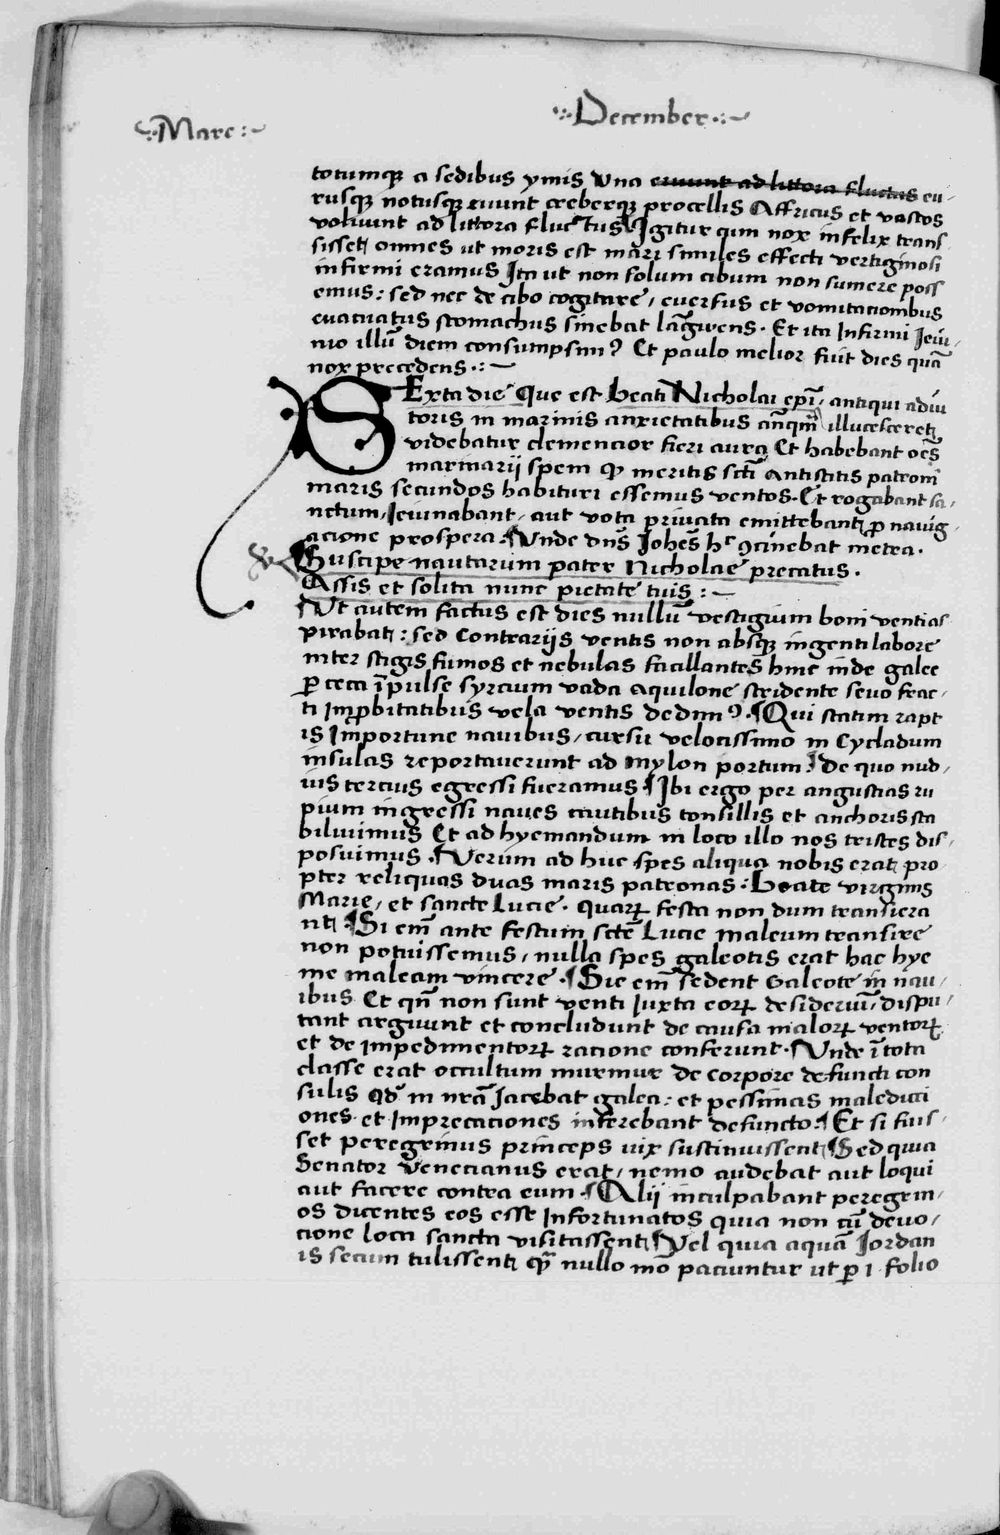 Mare
December
totumque a sedibus ymis Una eruunt ad littora fluctus eu-
rusque notusque ruunt creberque procellis Affricus et vastos
volvunt ad littora fluctus Igitur cum nox infelix trans
sisset omnes ut moris est mari similes effecti vertiginosi
infirmi eramus Ita ut non solum cibum non sumere poss
emus: sed nec de cibo cogitare, eversus et vomitacionibus
evacuatus stomachus sinebat languens. Et ita Infirmi Ieiu-
nio illū diem consumpsim9 Et paulo melior fuit dies quā
nox precedens.
SExta die Que est beati Nicholai ep̄i, antiqui adiu
toris in marinis anxietatibus illucesceret
videbatur clemencior fieri aura Et habebant oēs
marinarij spem qꝫ meritis sct̄i Antistitis patroni
maris secundos habituri essemus ventos. Et rogabant sa-
nctum, Ieiunabant, aut vota privata emittebant ꝓ navig
acione prospera. Unde dn̄s Johēs hc 9cinebat metra.
Suscipe nautarum pater Nicholae precatus.
Assis et solita nunc pietate tuis:
Ut autem factus est dies nullū vestigium boni venti as
pirabat: sed Contrarijs ventis non absque ingenti labore
inter stigis fumos et nebulas facillantes hinc inde galee
ꝑ ceca īpulse syrcium vada Aquilone stridente sevo frac-
ti Improbitatibus vela ventis dedim9. Qui statim rapt
is Importune navibus, cursu velocissimo in Cycladum
insulas reportaverunt ad mylon portum. De quo nud-
ius tercius egressi fueramus Ibi ergo per angustias ru
pium ingressi naves cautibus tonsillis et anchoris sta
bilivimus Et ad hyemandum in loco illo nos tristes dis-
posuimus. Verum ad huc spes aliqua nobis erat pro-
pter reliquas duas maris patronas: beate virginis
Marie, et sancte Lucie. quarꝝ festa non dum transiera
nt Si em̄ ante festum sctē Lucie maleum transire
non potuissemus, nulla spes galeotis erat hac hye
me maleam vincere. Sic em̄ sedent Galeote in nav-
ibus Et qn̄ non sunt venti Iuxta eorꝝ desiderium, dispu-
tant arguunt et concludunt de causa malorꝝ ventorꝝ
et de impedimentorꝝ racione conferunt. Unde ī tota
classe erat occultum murmur de corpore defuncti con
sulis qd̄ in nrā Iacebat galea: et pessimas maledicti
ones et Imprecaciones inferebant defuncto. Et si fuis-
set peregrinus princeps vix sustinuissent Sed quia
Senator Venecianus erat, nemo audebat aut loqui
aut facere contra eum. Alij inculpabant peregrin-
os dicentes eos esse Infortunatos quia non cū devo-
cione loca sancta visitassent Vel quia aquā Iordan
is secum tulissent qꝫ nullo mō paciuntur ut ꝑ 1 folio